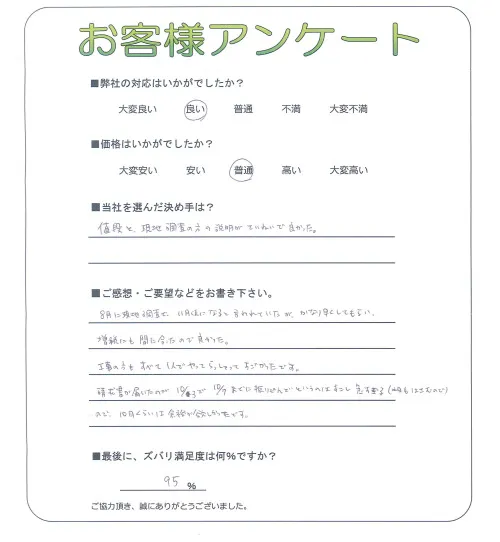 お客様アンケート
■弊社の対応はいかがでしたか？
大変良い 良い 普通 不満 大変不満
■価格はいかがでしたか？
大変安い 安い 普通 高い 大変高い
■当社を選んだ決め手は？
値段と、現地調査の方の説明がていねいで良かった。
■ご感想・ご要望などをお書き下さい。
8月に現地調査で、11月頃になると言われていたが、かなり早くしてもらい、
増税にも間に合ったので良かった。
工事の方もすべて1人でやってらっしゃってすごかったです。
請求書が届いたのが 10/3で 10/7までに振り込んでというのはすこし
ので、10日くらいは余裕が欲しかったです。
■最後に、ズバリ満足度は何%ですか？
95 %
ご協力頂き、誠にありがとうございました。